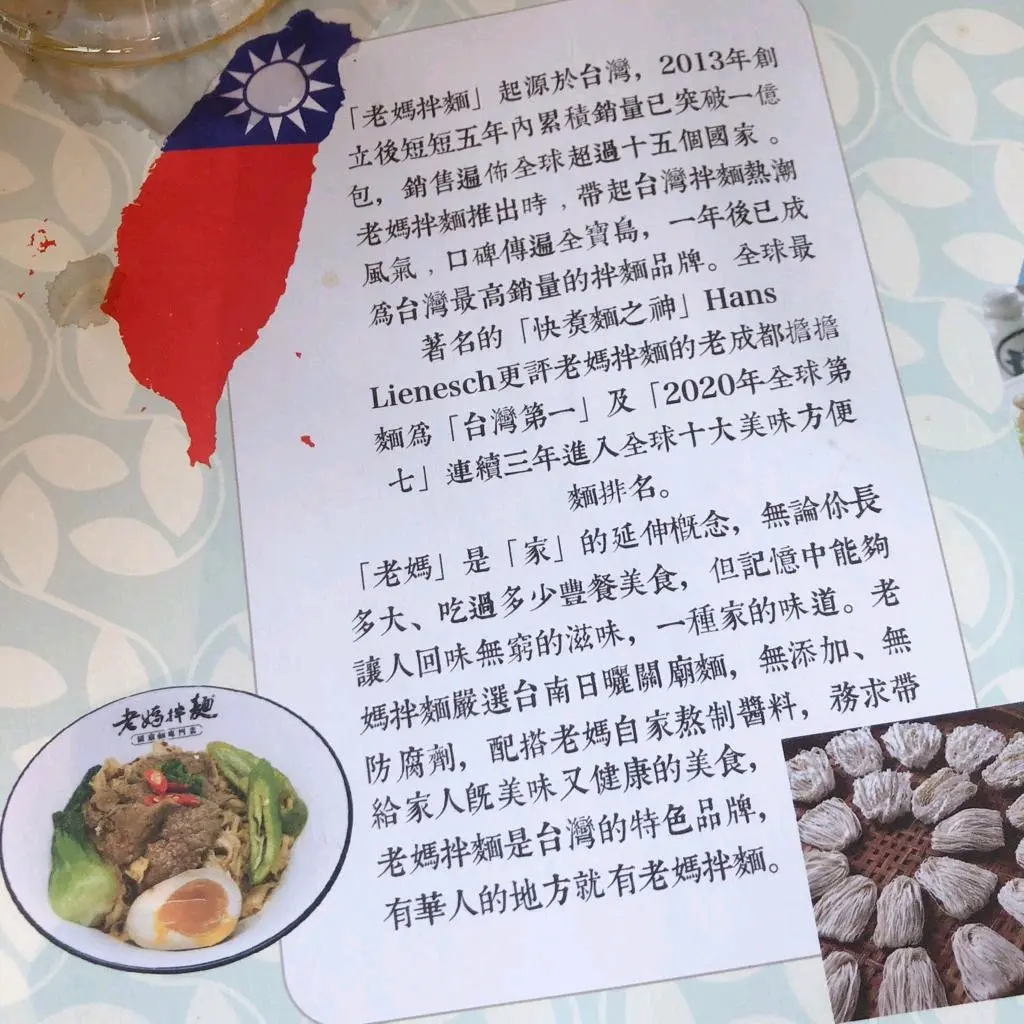 「老媽拌麵」起源於台灣，2013年創
立後短短五年內累積銷量已突破一億
包，銷售遍佈全球超過十五個國家。
老媽拌麵推出時，帶起台灣拌麵熱潮
風氣，口碑傳遍全寶島，一年後已成
為台灣最高銷量的拌麵品牌。全球最
著名的「快煮麵之神」Hans
Lienesch更評老媽拌麵的老成都擔擔
麵為「台灣第一」及「2020年全球第
七」連續三年進入全球十大美味方便
麵排名。
「老媽」是「家」的延伸概念，無論你長
多大、吃過多少豐餐美食，但記憶中能夠
讓人回味無窮的滋味，一種家的味道。老
媽拌麵嚴選台南日曬關廟麵，無添加、無
防腐劑，配搭老媽自家熬制醬料，務求帶
給家人既美味又健康的美食，
老媽拌麵是台灣的特色品牌，
有華人的地方就有老媽拌麵。
老媽拌麵